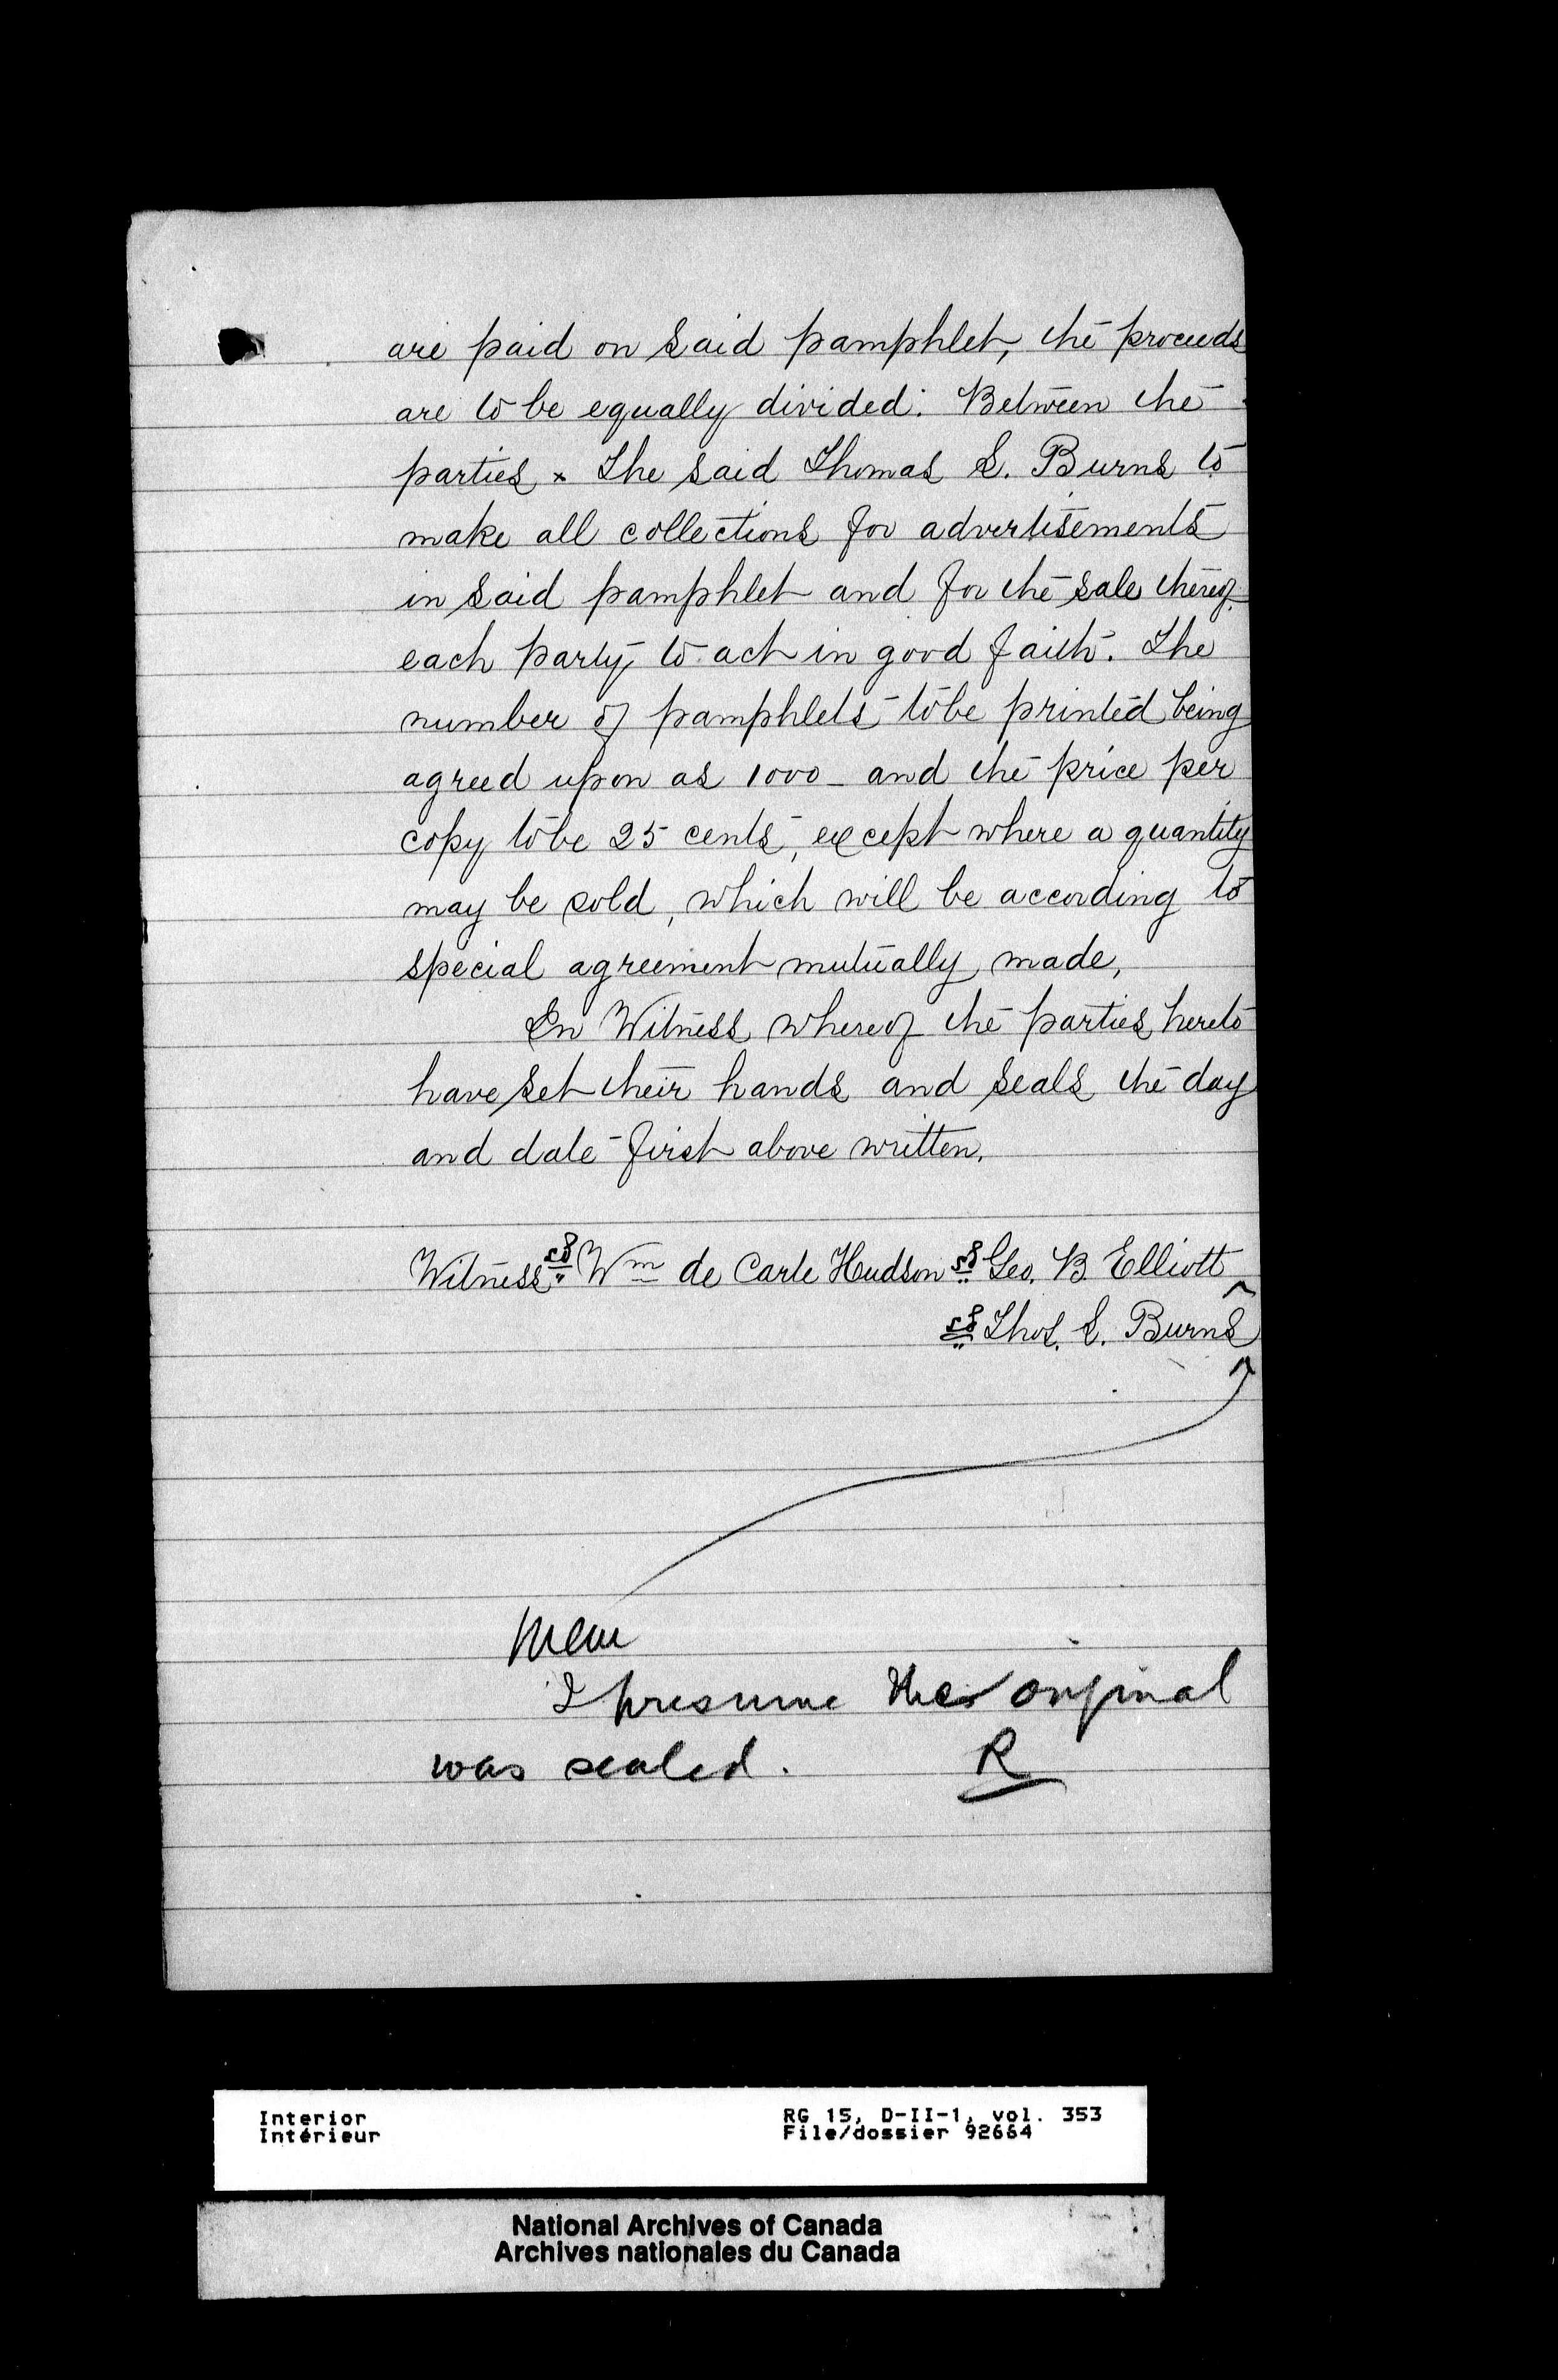 are paid on said pamphlet, the proceeds
are to be equally divided. Between the
parties x The said Thomas S. Burns to
make all collections for advertisements
in said pamphlet and for the sale thereof,
each party to act in good faith. The
number of pamphlets to be printed being
agreed upon as 1000 - and the price per
copy to be 25 cents, except where a quantity
may be sold, which will be according to
special agreement mutually made,
In Witness whereof the parties hereto
have set their hands and seals the day
and date first above written.
Witness sd Wm de Carle Hudson sd Geo. B. Elliott
sd Thos. S. Burns
Mem
I presume the original
was sealed. R
Interior RG 15, D-II-1, vol. 353
Intérieur File/dossier 92664
National Archives of Canada
Archives nationales du Canada